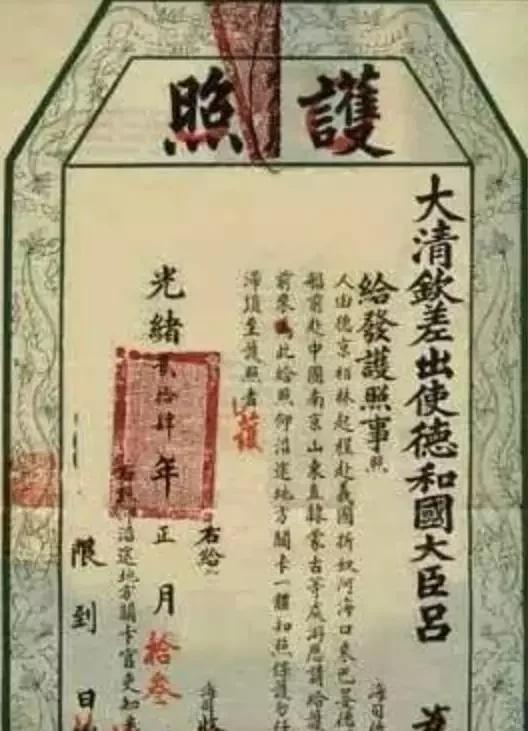 護照
大清欽差出使德和國大臣呂
給發護照事照
人由德京柏林起程赴義國折奴阿海口乘巴晏德
船前赴中國南京山東直隸蒙古等處游歷請給護
前來 此給照仰沿途地方關卡一體知照保護勿任
滯須至護照者
護
右給
光緒貳拾肆年正月拾叁
沿途地方關卡官吏知悉
限到 日